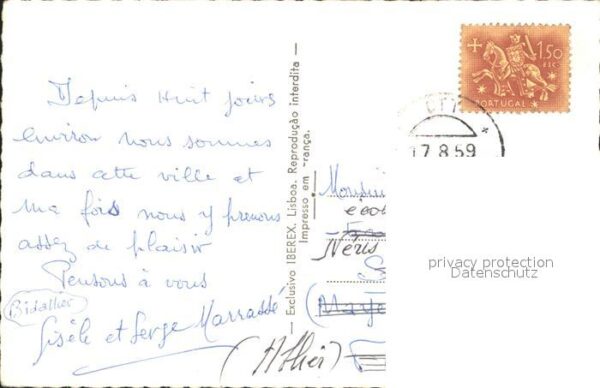 Depuis Huit jours
environ nous sommes
dans cette ville et
ma fois nous y prenons
assez de plaisir
Pensons à vous
Bidallier
Gisèle et Serge Marrassé
— Exclusivo IBEREX, Lisboa. Reprodução interdita —
Impresso em França.
1$50
ESC.
PORTUGAL
CTT
17.8.59
Monsieur
Néris
(Allier)
privacy protection
Datenschutz